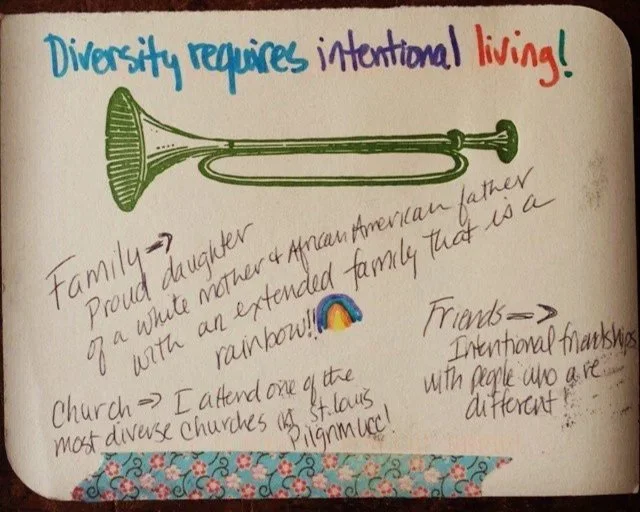 Diversity requires intentional living!
Family →
Proud daughter
of a white mother & African American father
with an extended family that is a
rainbow!!
Friends →
Intentional friendships
with people who are
different!
Church → I attend one of the
most diverse churches in St. Louis
Pilgrim UCC!